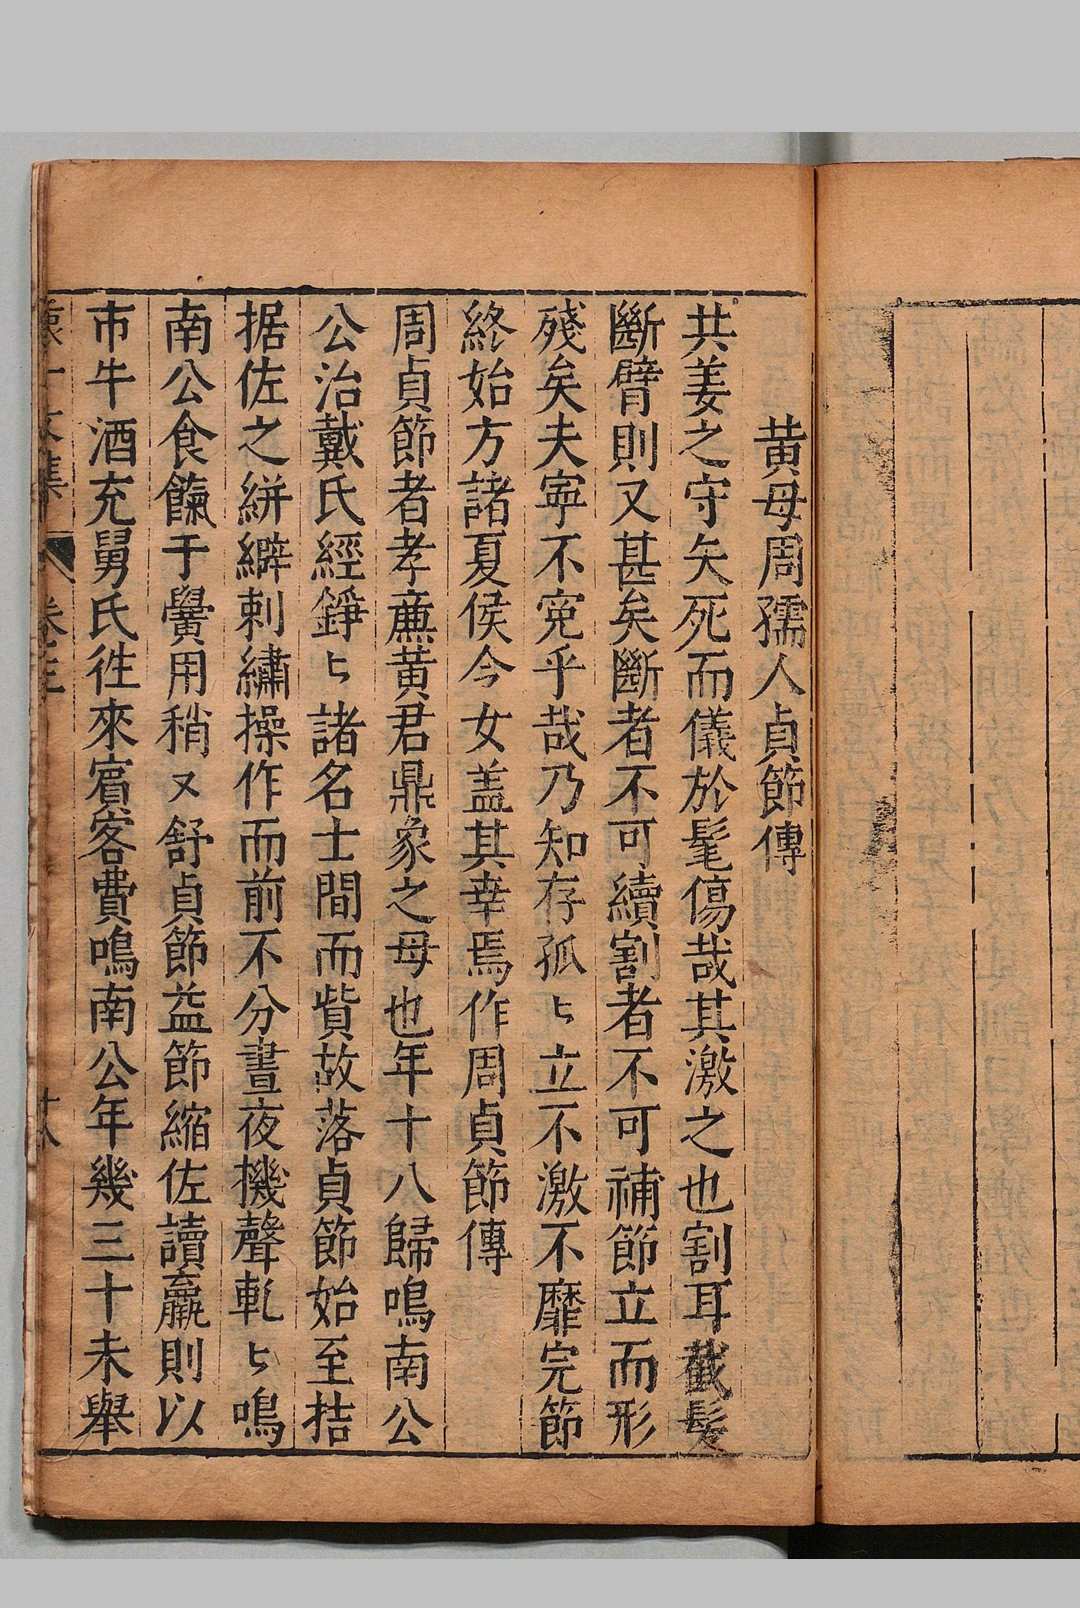 黄母周孺人貞節傳
共姜之守矢死而儀於髦傷哉其激之也割耳截髮
斷臂則又甚矣斷者不可續割者不可補節立而形
殘矣夫寧不寃乎哉乃知存孤〻立不激不靡完節
終始方諸夏侯今女盖其幸焉作周貞節傳
周貞節者孝亷黄君鼎象之母也年十八歸鳴南公
公治戴氏經錚〻諸名士間而貲故落貞節始至拮
据佐之絣繲刺繡操作而前不分晝夜機聲軋〻鳴
南公食饎于黌用稍又舒貞節益節縮佐讀羸則以
市牛酒充舅氏徃來賔客費鳴南公年幾三十未舉
文集
卷三